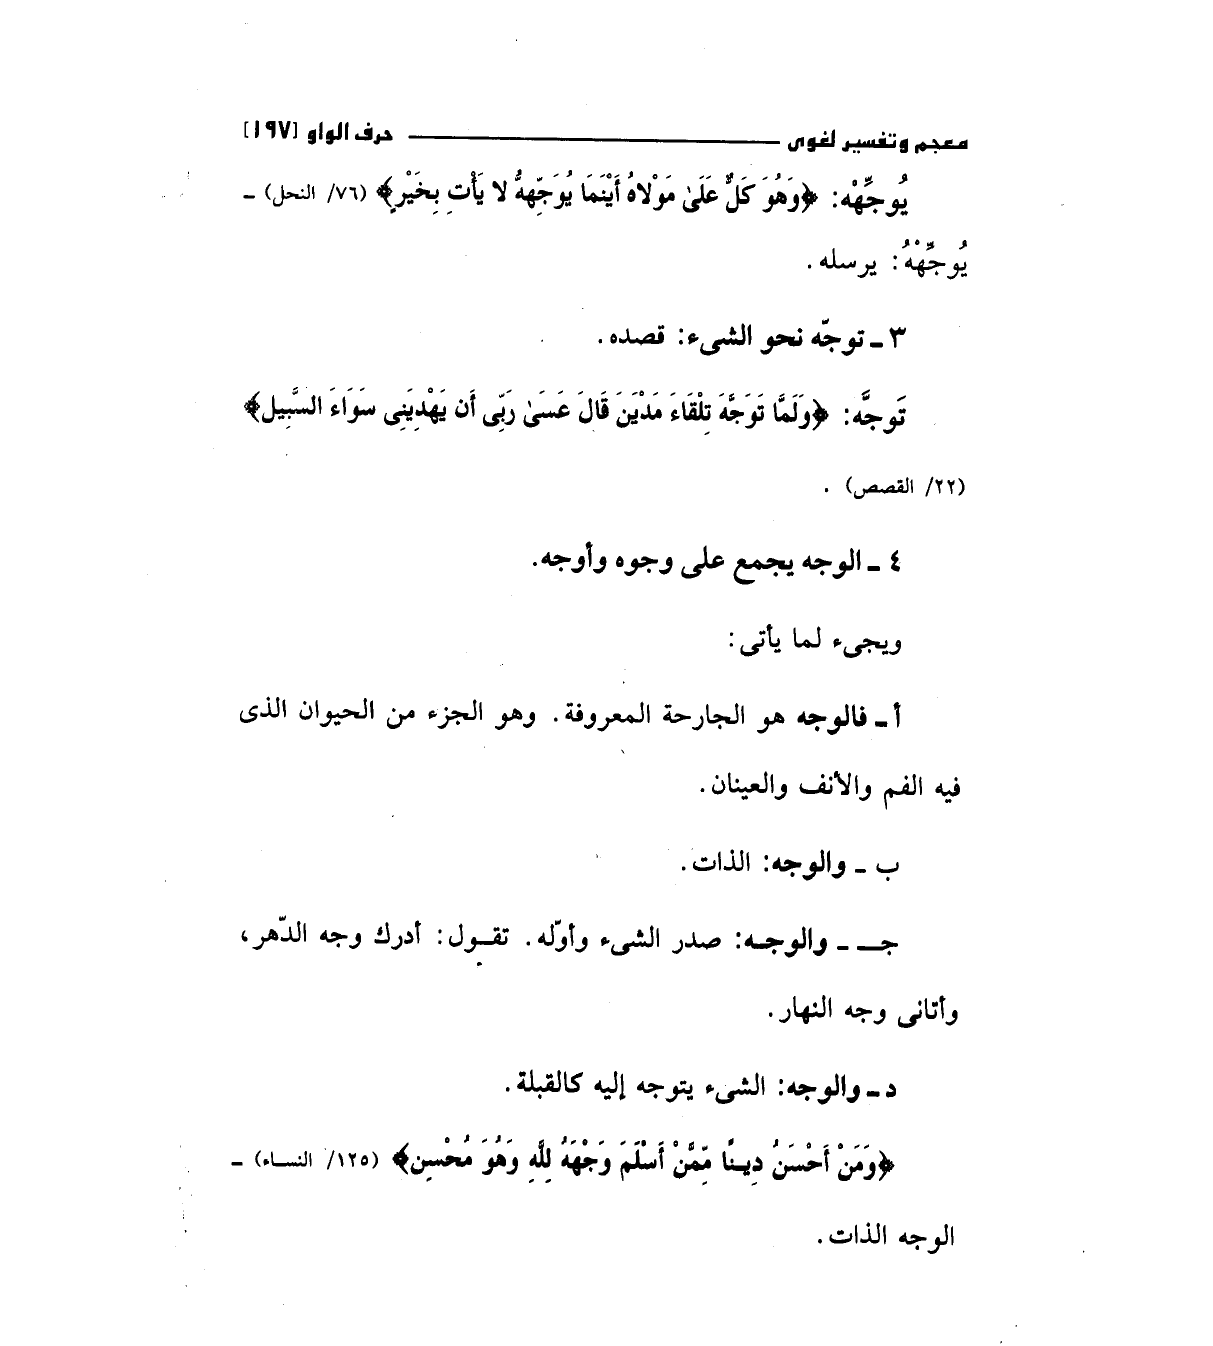 معجم وتفسير لغوى ــــــ حرف الواو [١٩٧]
يُوجِّهْه: ﴿وَهُوَ كَلٌّ عَلَىٰ مَوْلاهُ أَيْنَمَا يُوَجِّههُّ لا يَأْتِ بِخَيْرٍ﴾ (٧٦/ النحل) ـ
يُوجِّهْهُ: يرسله.
٣ ـ توجّه نحو الشىء: قصده.
تَوجَّه: ﴿وَلَمَّا تَوَجَّهَ تِلْقَاءَ مَدْيَنَ قَالَ عَسَىٰ رَبِّى أَن يَهْدِيَنِى سَوَاءَ السَّبِيل﴾
(٢٢/ القصص) .
٤ ـ الوجه يجمع على وجوه وأوجه.
ويجىء لما يأتى:
أ ـ فالوجه هو الجارحة المعروفة. وهو الجزء من الحيوان الذى
فيه الفم والأنف والعينان.
ب ـ والوجه: الذات.
جــ ـ والوجـه: صدر الشىء وأوّله. تقـول: أدرك وجه الدّهر،
وأتانى وجه النهار.
د ـ والوجه: الشىء يتوجه إليه كالقبلة.
﴿وَمَنْ أَحْسَنُ دِيـنًا مِّمَّنْ أَسْلَمَ وَجْهَهُ لِلَّهِ وَهُوَ مُحْسِن﴾ (١٢٥/ النسـاء) ـ
الوجه الذات.